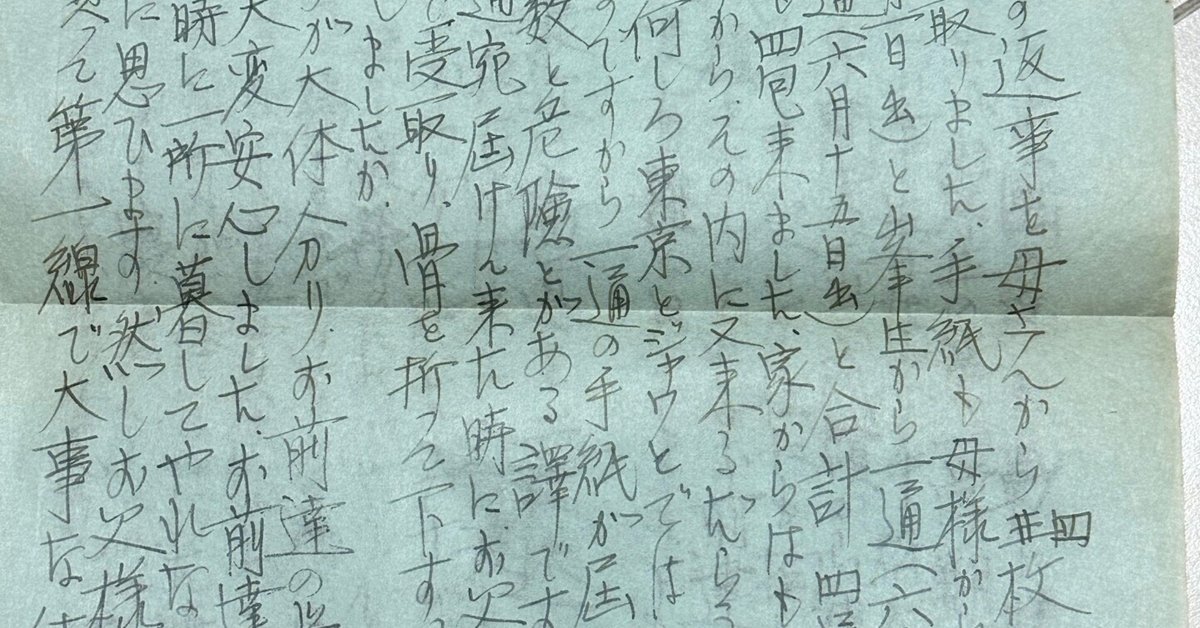 の返事を母さんから四枚
取りました、手紙も母様から
日出)と峯生から一通(六
通(六月十五日出)と合計四
四包来ました、家からはも
から、その内に又来るだらう
何しろ東京とジャワとでは
のですから一通の手紙が届
数と危険とがある譯です
通宛届けん来た時にお父
で受取り、骨を折って下す
しましたか、
が大体分り、お前達の
大変安心しました、お前達
時に一所に暮してやれな
に思ひます、然しお父様
って第一線で大事な